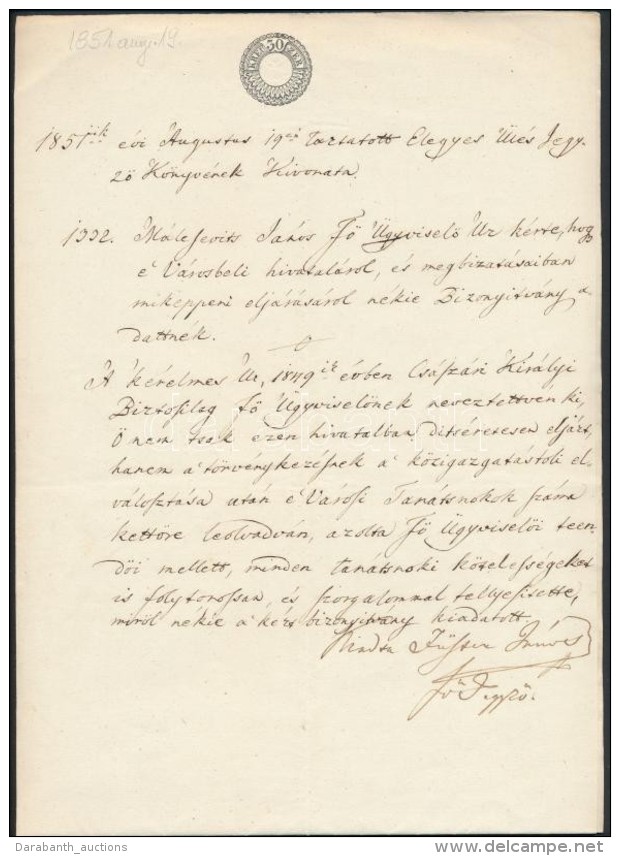 1851 aug. 19.
30
1851ik évi Augustus 19én Tartatott Elegyes Ülés Jegy-
ző Könyvének Kivonata.
1332. Málesevits János Fő Ügyviselő Úr kérte, hogy
é Városbeli hivataláról, és megbizatásaiban
miképpeni eljárásáról nékie Bizonyitvány a-
dattnék.
A kérelmes Úr, 1849ik évben Császári Királyi
Biztosilag Fő Ügyviselőnek neveztettvén ki,
Ő nem tsak ezen hivatalban ditséretesen eljárt,
hanem a' törvénykezésnek a' közigazgatástóli el-
válosztása után é Városi Tanátsnokok száma
kettőre leolvadván, azolta Fő Ügyviselői teen-
dői mellett, minden tanátsnoki kötelességeket
is folytonossan, és szorgalommal tellyesitette,
miről nékie a' kért bizonyitvány kiadatott.
Kiadta János
Fő Jegyző.
Darabanth_auctions